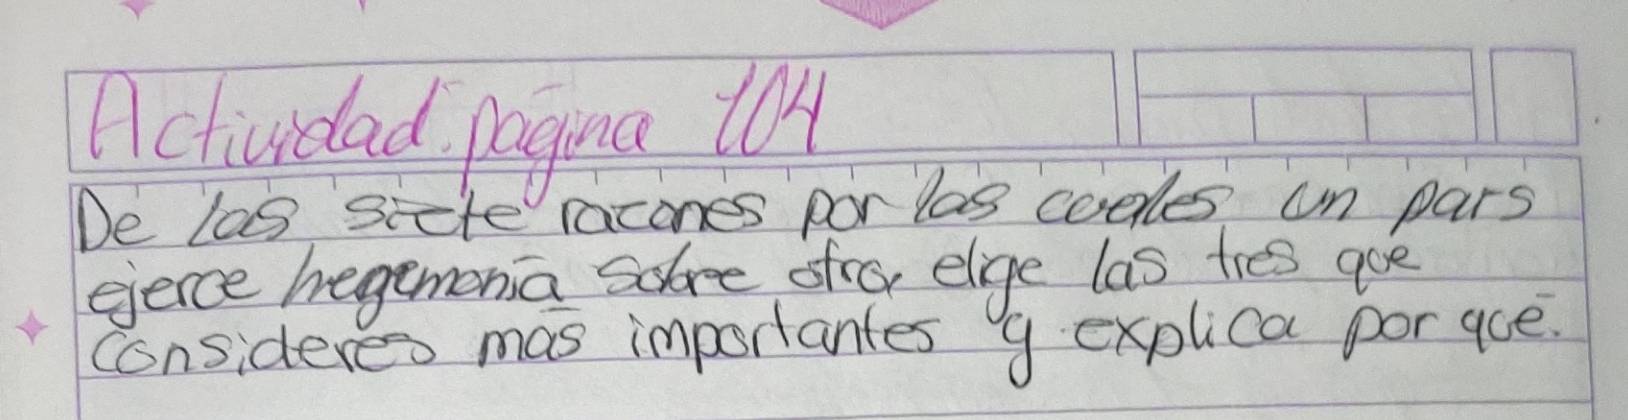 Actividad página 104
De las siete razones por las cuales un país
ejerce hegemonía sobre otra, elige las tres que
consideres más importantes y explica por qué.